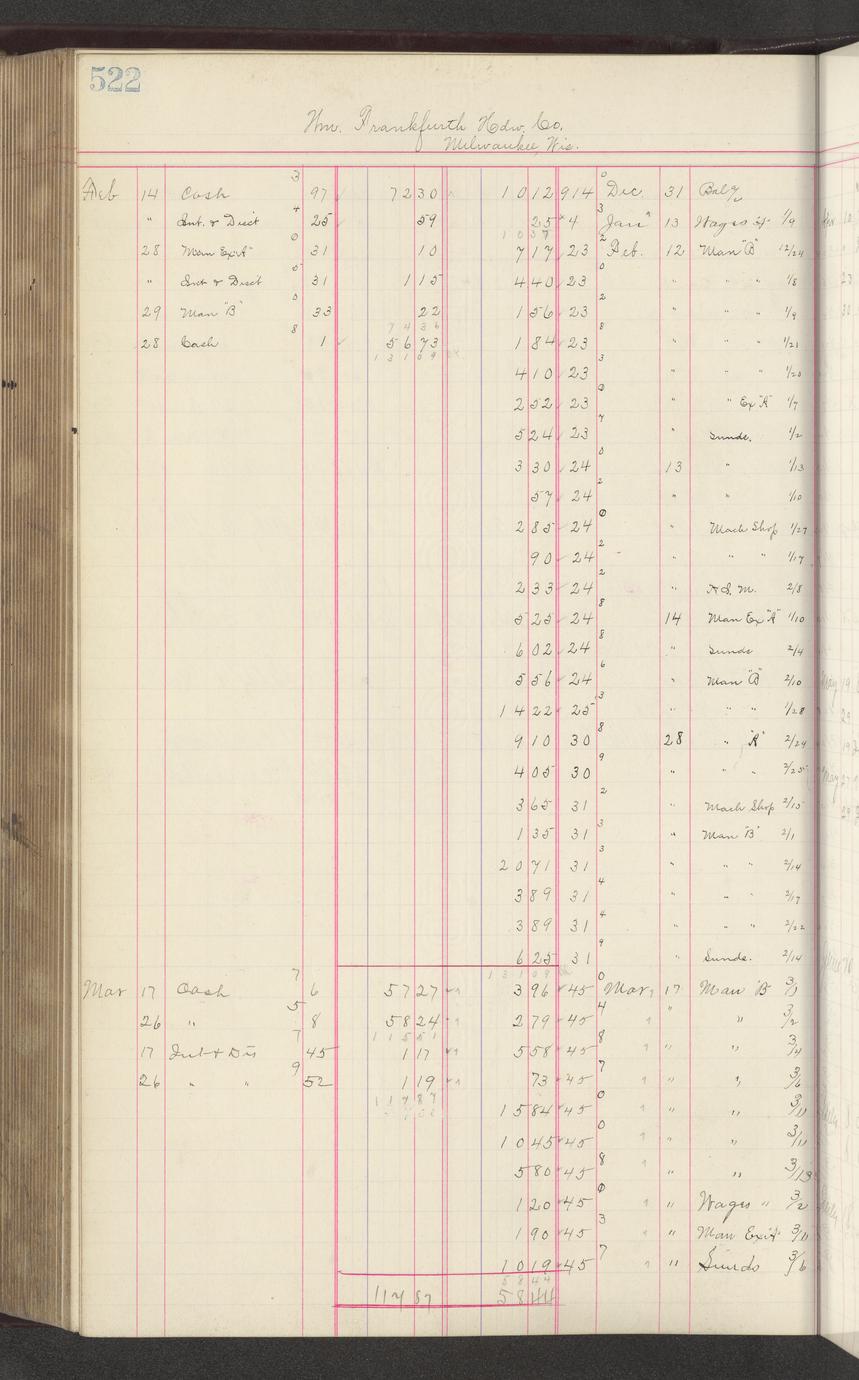 522
Wm. Frankfurth Hdw. Co.
Milwaukee, Wis.
Feb 14 Cash 3 97 7230 1012 9 14 0 Dec. 31 Bal
" Int. & Disct 4 25 59 25 4 3 Jan 13 Wages 1/9
1037
28 Man Ex "A" 0 31 10 717 23 2 Feb. 12 Man "B" 12/24
" Int & Disct 5 31 115 440 23 0 " " " 1/8
29 Man "B" 0 33 22 156 23 2 " " " 1/9
7436
28 Cash 8 1 5673 184 23 8 " " " 1/21
13109
410 23 3 " " " 1/20
252 23 0 " " Ex "A" 1/7
524 23 7 " Sunds. 1/2
330 24 0 13 " 1/13
57 24 2 " " 1/10
285 24 0 " Mach Shop 1/27
90 24 2 " " " 1/17
233 24 2 " A.S.M. 2/8
525 24 8 14 Man Ex "A" 1/10
602 24 8 " Sunds 2/4
556 24 6 " Man "B" 2/10
1422 25 3 " " " 1/28
910 30 8 28 " "A" 2/24
405 30 9 " " " 2/25
365 31 2 " Mach Shop 2/15
135 31 3 " Man "B" 2/1
2071 31 3 " " " 2/14
389 31 4 " " " 2/17
389 31 4 " " " 2/22
625 31 9 " Sunds. 2/14
13109
Mar 17 Cash 7 6 5727 396 45 0 Mar, 17 Man "B" 3/1
26 " 5 8 5824 279 45 4 " " " 3/2
11551
17 Int & Dis 7 45 117 558 45 8 " " " 3/4
26 " " 9 52 119 73 45 7 " " " 3/6
11787
1584 45 0 " " " 3/11
1045 45 0 " " " 3/11
580 45 8 " " " 3/13
120 45 0 " " Wages " 3/2
190 45 3 " " Man Ex "A" 3/11
1019 45 7 " " Sunds 3/6
5844
11787 5844